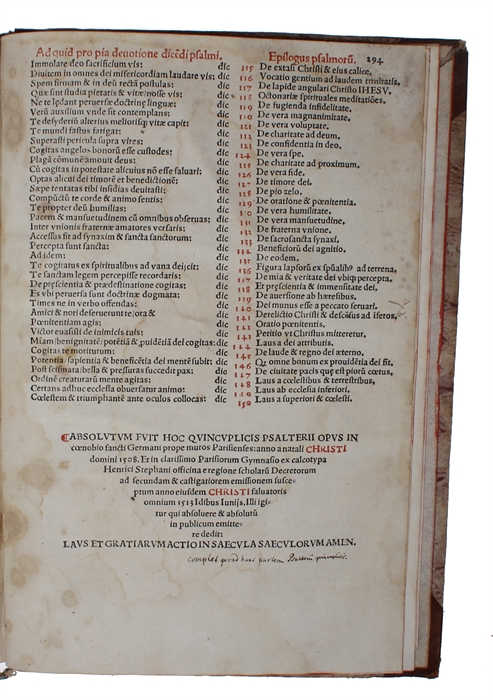 Ad quid pro pia deuotione dicēdi psalmi. Epilogus psalmorū. 294
Immolare deo sacrificium vis: dic 115 De extasi Christi & eius calice.
Diuitem in omnes dei misericordiam laudare vis: dic 116 Vocatio gentium ad laudem trinitatis.
Spem firmam & in deū recta postulas: dic 117 De lapide angulari Christo IHESV.
Quæ sint studia pietatis & vitæ nosse vis: dic 118 Octonariæ spirituales meditatiões.
Ne te lædant peruersæ doctrinæ linguæ: dic 119 De fugienda infidelitate.
Verū auxilium vnde sit contemplans: dic 120 De vera magnanimitate.
Te desyderū alterius meliorisq; vitæ capit: dic 121 De vera voluptate.
Te mundi fastus fatigat: dic 122 De charitate ad deum.
Superasti pericula supra vires: dic 123 De confidentia in deo.
Cogitas angelos bonorū esse custodes: dic 124 De vera spe.
Plagā cōmunē amouit deus: dic 125 De charitate ad proximum.
Cū cogitas in potestate alicuius nō esse saluari: dic 126 De vera fide.
Optas alicui dei timorē et benedictionē: dic 127 De timore dei.
Sæpe tentatas tibi insidias deuitasti: dic 128 De pio zelo.
Compūctū te corde & animo sentis: dic 129 De oratione & pœnitentia.
Te propter deū humilias: dic 130 De vera humilitate.
Pacem & mansuetudinem cū omnibus obseruas: dic 131 De vera mansuetudine.
Inter vnionis fraternæ amatores versaris: dic 132 De fraterna vnione.
Accessus sit ad synaxim & sancta sanctorum: dic 133 De sacrosancta synaxi.
Percepta sunt sancta: dic 134 Beneficiorū dei agnitio.
Ad idem: dic 135 De eodem.
Te cogitatus ex spiritualibus ad vana deiecit: dic 136 Figura lapsorū ex spūalibꝰ ad terrena.
Te sanctam legem percepisse recordaris: dic 137 De mīa & veritate dei vbiq; percepta.
De præscientia & prædestinatione cogitas: dic 138 Et præscientia & immensitate dei.
Es vbi peruersa sunt doctrinæ dogmata: dic 139 De auersione ab hæresibus.
Times ne in verbo offendas: dic 140 Dei munus esse a peccato seruari.
Amici & noti deseruerunt te/ora & dic 141 Derelictio Christi & descēsus ad iferos.
Pœnitentiam agis: dic 142 Oratio pœnitentis.
Victor euasisti de inimicis tuis: dic 143 Petitio vt Christus mitteretur.
dic 144 Laus a dei attributis.
Cogitas te moriturum: dic 145 De laude & regno dei æterno.
Potentia/sapientia & beneficētia dei mentē subit: dic 146 Qꝫ omne bonum ex prouidētia dei fit.
Post scismata/bella & pressuras succedit pax: dic 147 De ciuitate pacis quæ est piorū cœtus.
Ordinē creaturarū mente agitas: dic 148 Laus a cœlestibus & terrestribus.
Certans adhuc ecclesia obuersatur animo: dic 149 Laus ab ecclesia inferiori.
Cœlestem & triumphantē ante oculos collocas: dic 150 Laus a superiori & cœlesti.
¶ABSOLVTVM FVIT HOC QVINCVPLICIS PSALTERII OPVS IN
cœnobio sancti Germani prope muros Parisienses: anno a natali CHRISTI
domini 1508. Et in clarissimo Parisiorum Gymnasio ex calcotypa
Henrici Stephani officina e regione scholarū Decretorum
ad secundam & castigatiorem emissionem susce-
ptum anno eiusdem CHRISTI saluatoris
omnium 1513 Idibus Iunijs. Illi igi-
tur qui absoluere & absolutū
in publicum emitte-
re dedit:
LAVS ET GRATIARVM ACTIO IN SAECVLA SAECVLORVM AMEN.